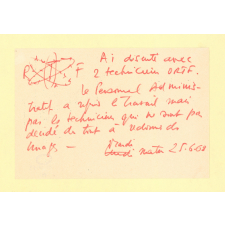 R F
Ai discuté avec
2 techniciens ORTF.
Le Personnel Adminis-
tratif a repris le travail mais
pas les techniciens qui ne sont pas
décidés du tout à
Mardi matin 25.6.68